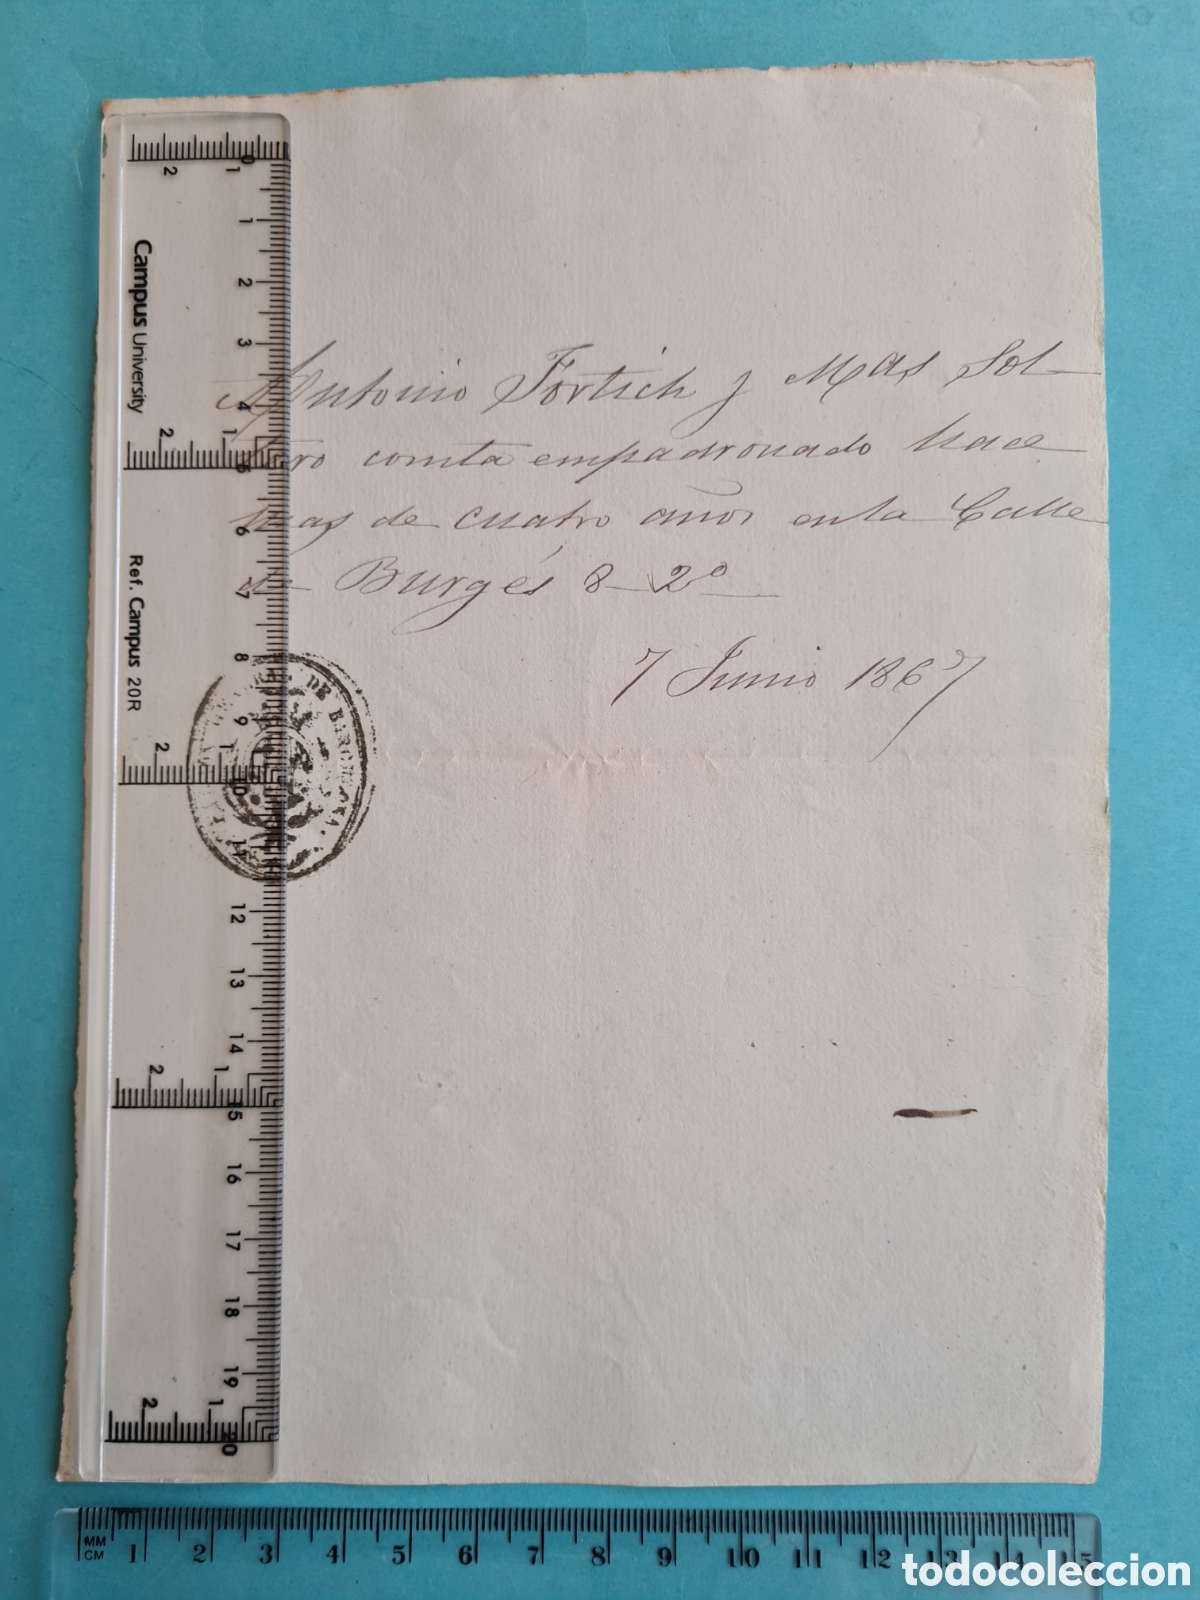 Antonio Fortich y Mas Sol-
tero consta empadronado hace
mas de cuatro años en la Calle
de Burgés 8-2º
7 Junio 1867
DE BARCELONA
Campus University
Ref. Campus 20R
2 1 0
1
2
3
4
2 1 5
6
7
8
9
2 1 10
11
12
13
14
2 1 15
16
17
18
19
2 1 20
MM
CM 1 2 3 4 5 6 7 8 9 10 11 12 13 14 15
todocoleccion